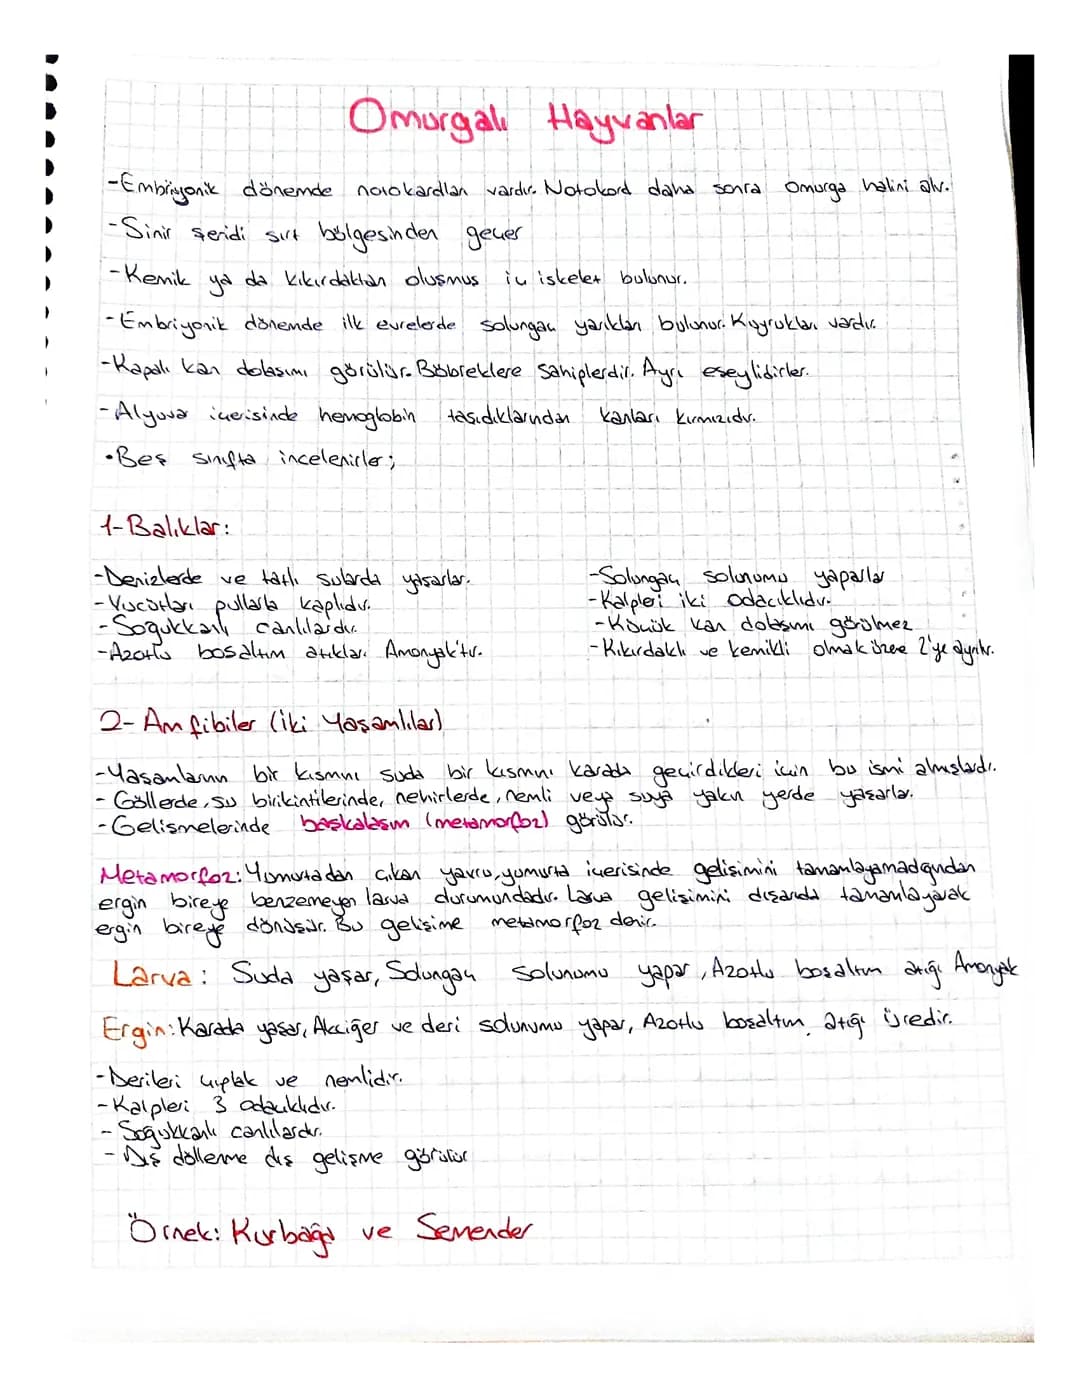 Omurgalı Hayvanlar
-Embriyonik dönemde notokordları vardır. Notokord daha sonra omurga halini alır.
-Sinir şeridi sırt bölgesinden geçer
-Kemik ya da kıkırdaktan oluşmuş iç iskelet bulunur.
-Embriyonik dönemde ilk evrelerde solungaç yarıkları bulunur. Kuyrukları vardır.
-Kapalı kan dolaşımı görülür. Böbreklere sahiplerdir. Ayrı eşeylidirler.
-Alyuvar içerisinde hemoglobin taşıdıklarından kanları kırmızıdır.
•Beş sınıfta incelenirler;
1-Balıklar:
-Denizlerde ve tatlı sularda yaşarlar.
-Vücutları pullarla kaplıdır.
-Soğukkanlı canlılardır.
-Azotlu boşaltım atıkları Amonyak'tır.
-Solungaç solunumu yaparlar
-Kalpleri iki odacıklıdır.
-Küçük kan dolaşımı görülmez
-Kıkırdaklı ve kemikli olmak üzere 2'ye ayrılır.
2- Amfibiler (İki Yaşamlılar)
-Yaşamlarının bir kısmını suda bir kısmını karada geçirdikleri için bu ismi almışlardır.
- Göllerde, su birikintilerinde, nehirlerde, nemli veya suya yakın yerde yaşarlar.
-Gelişmelerinde başkalaşım (metamorfoz) görülür.
Metamorfoz: Yumurtadan çıkan yavru, yumurta içerisinde gelişimini tamamlayamadığından
ergin bireye benzemeyen larva durumundadır. Larva gelişimini dışarıda tamamlayarak
ergin bireye dönüşür. Bu gelişime metamorfoz denir.
Larva: Suda yaşar, Solungaç solunumu yapar, Azotlu boşaltım atığı Amonyak
Ergin: Karada yaşar, Akciğer ve deri solunumu yapar, Azotlu boşaltım atığı üredir.
-Derileri çıplak ve nemlidir.
-Kalpleri 3 odacıklıdır.
- Soğukkanlı canlılardır.
- Dış dölleme dış gelişme görülür
Örnek: Kurbağa ve Semender